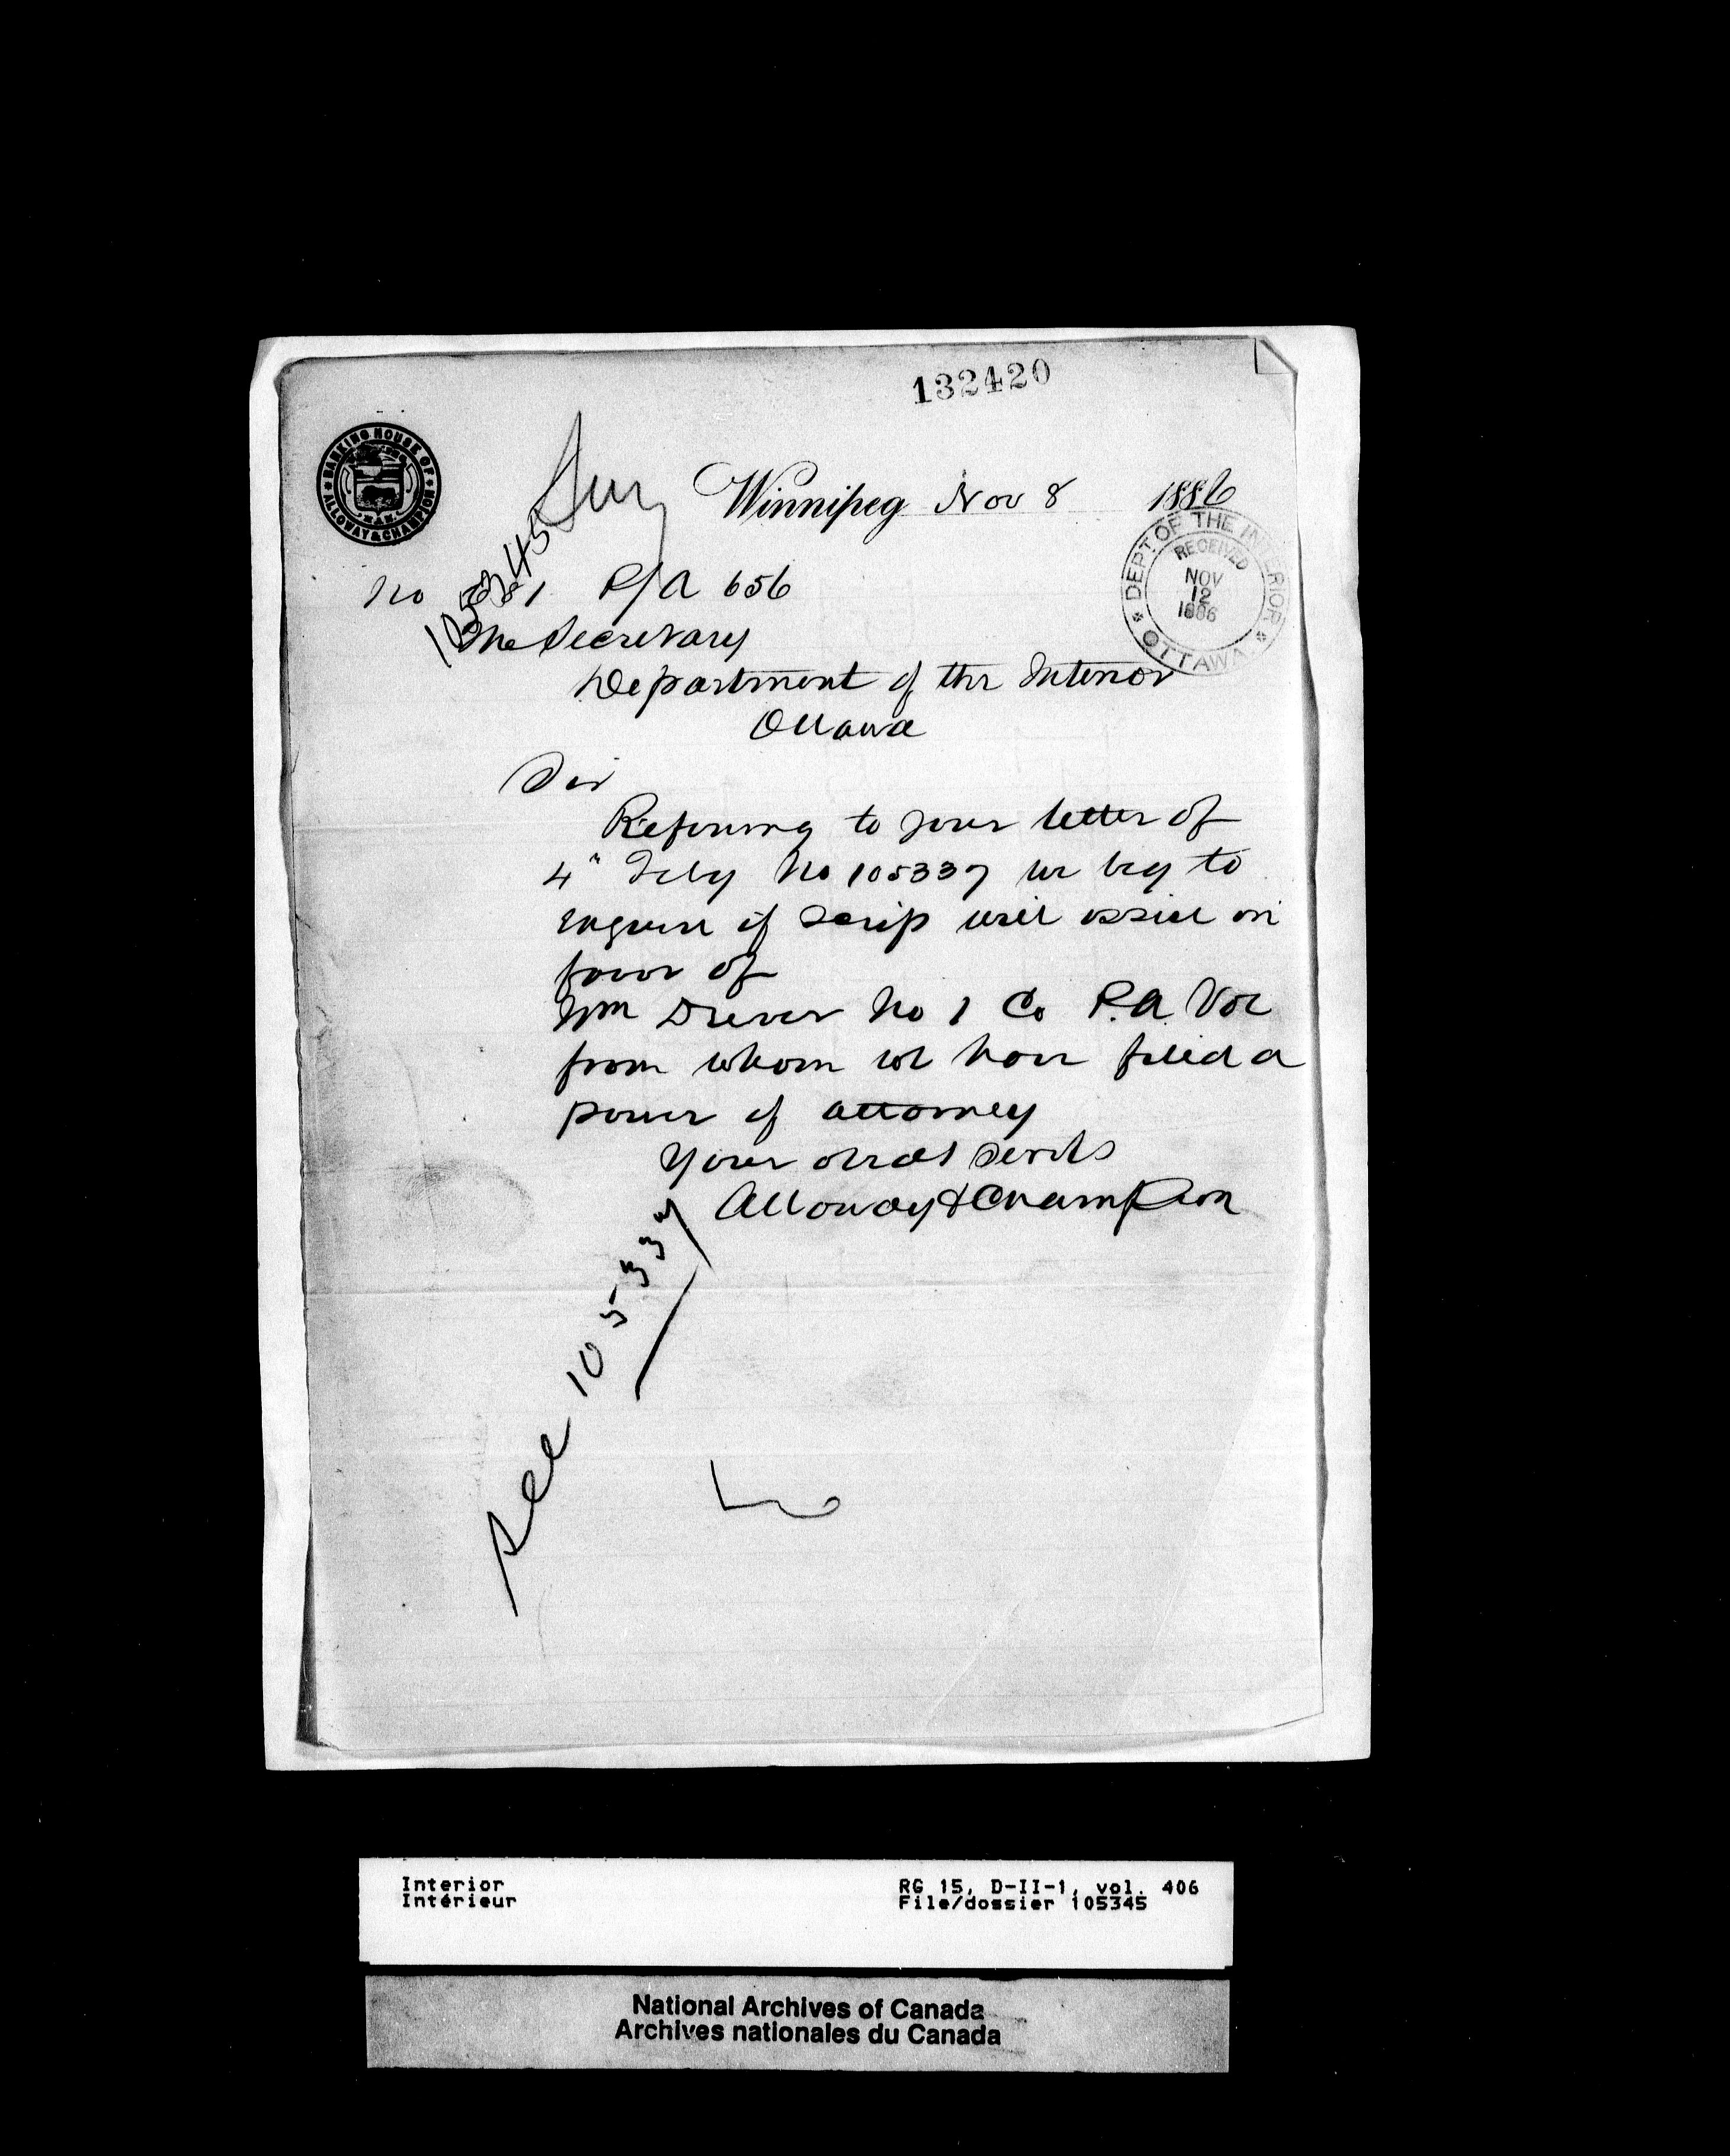 132420
BANKING HOUSE OF
ALLOWAY & CHAMPION
Winnipeg Nov 8 1886
DEPT. OF THE INTERIOR
RECEIVED
NOV
12
1886
OTTAWA
105345
No P/A 656
The Secretary
Department of the Interior
Ottawa
Sir
Refering to your letter of
4" July No 105337 we beg to
enquire if scrip will issue in
favor of
Wm Drever No 1 Co P.A. Vol
from whom we have filed a
power of attorney
Your obedt servts
Alloway & Champion
See 105337
Interior
Intérieur
RG 15, D-II-1, vol. 406
File/dossier 105345
National Archives of Canada
Archives nationales du Canada